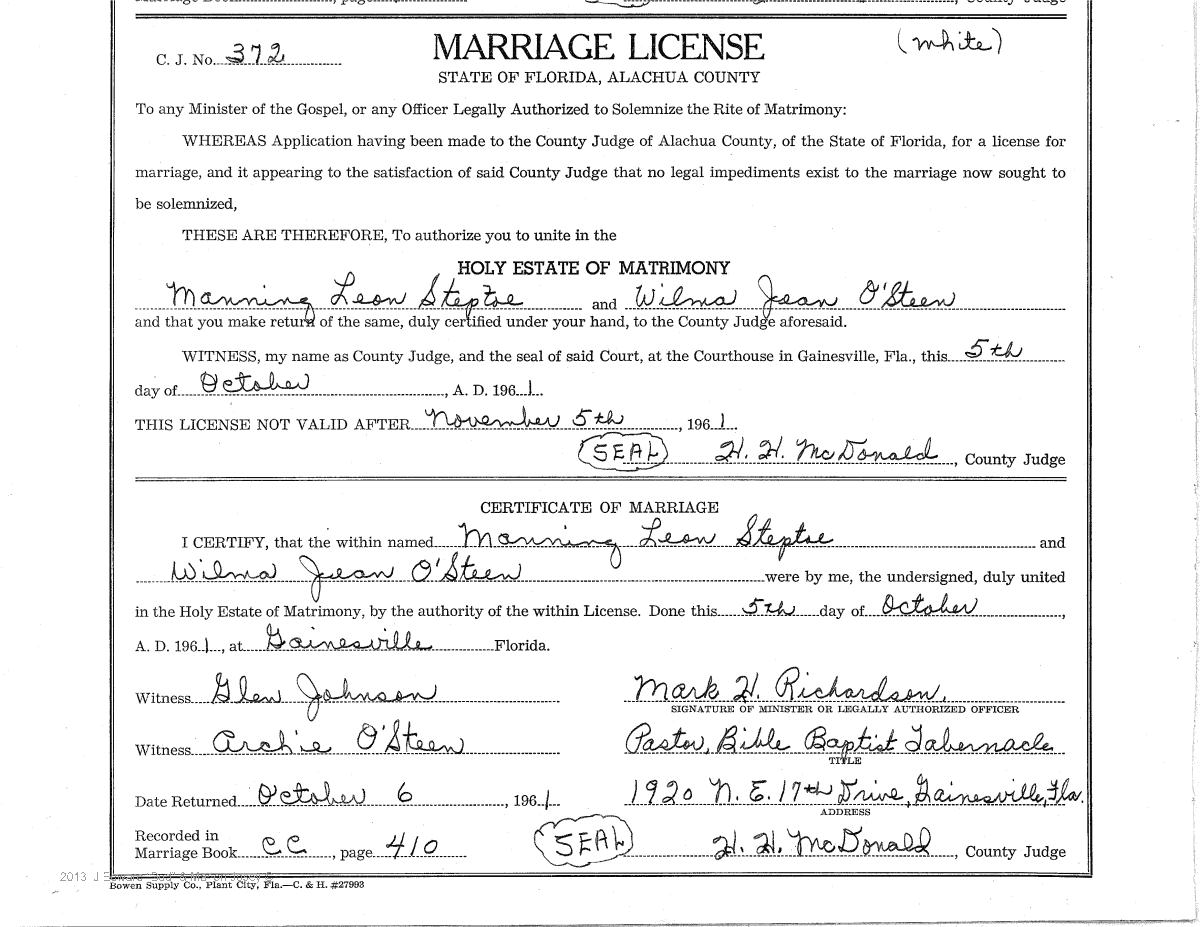 , County Judge
C. J. No. 372
MARRIAGE LICENSE
(white)
STATE OF FLORIDA, ALACHUA COUNTY
To any Minister of the Gospel, or any Officer Legally Authorized to Solemnize the Rite of Matrimony:
WHEREAS Application having been made to the County Judge of Alachua County, of the State of Florida, for a license for
marriage, and it appearing to the satisfaction of said County Judge that no legal impediments exist to the marriage now sought to
be solemnized,
THESE ARE THEREFORE, To authorize you to unite in the
HOLY ESTATE OF MATRIMONY
Manning Leon Steptoe and Wilma Jean O'Steen
and that you make return of the same, duly certified under your hand, to the County Judge aforesaid.
WITNESS, my name as County Judge, and the seal of said Court, at the Courthouse in Gainesville, Fla., this 5th
day of October, A. D. 1961.
THIS LICENSE NOT VALID AFTER November 5th, 1961.
(SEAL) H. H. McDonald, County Judge
CERTIFICATE OF MARRIAGE
I CERTIFY, that the within named Manning Leon Steptoe and
Wilma Jean O'Steen were by me, the undersigned, duly united
in the Holy Estate of Matrimony, by the authority of the within License. Done this 5th day of October,
A. D. 1961, at Gainesville Florida.
Witness Glen Johnson Mark H. Richardson.
SIGNATURE OF MINISTER OR LEGALLY AUTHORIZED OFFICER
Witness Archie O'Steen Pastor, Bible Baptist Tabernacle
TITLE
Date Returned October 6, 1961. 1920 N. E. 17th Drive, Gainesville, Fla.
ADDRESS
Recorded in
Marriage Book CC, page 410 (SEAL) H. H. McDonald, County Judge
2013 J
Bowen Supply Co., Plant City, Fla.—C. & H. #27993